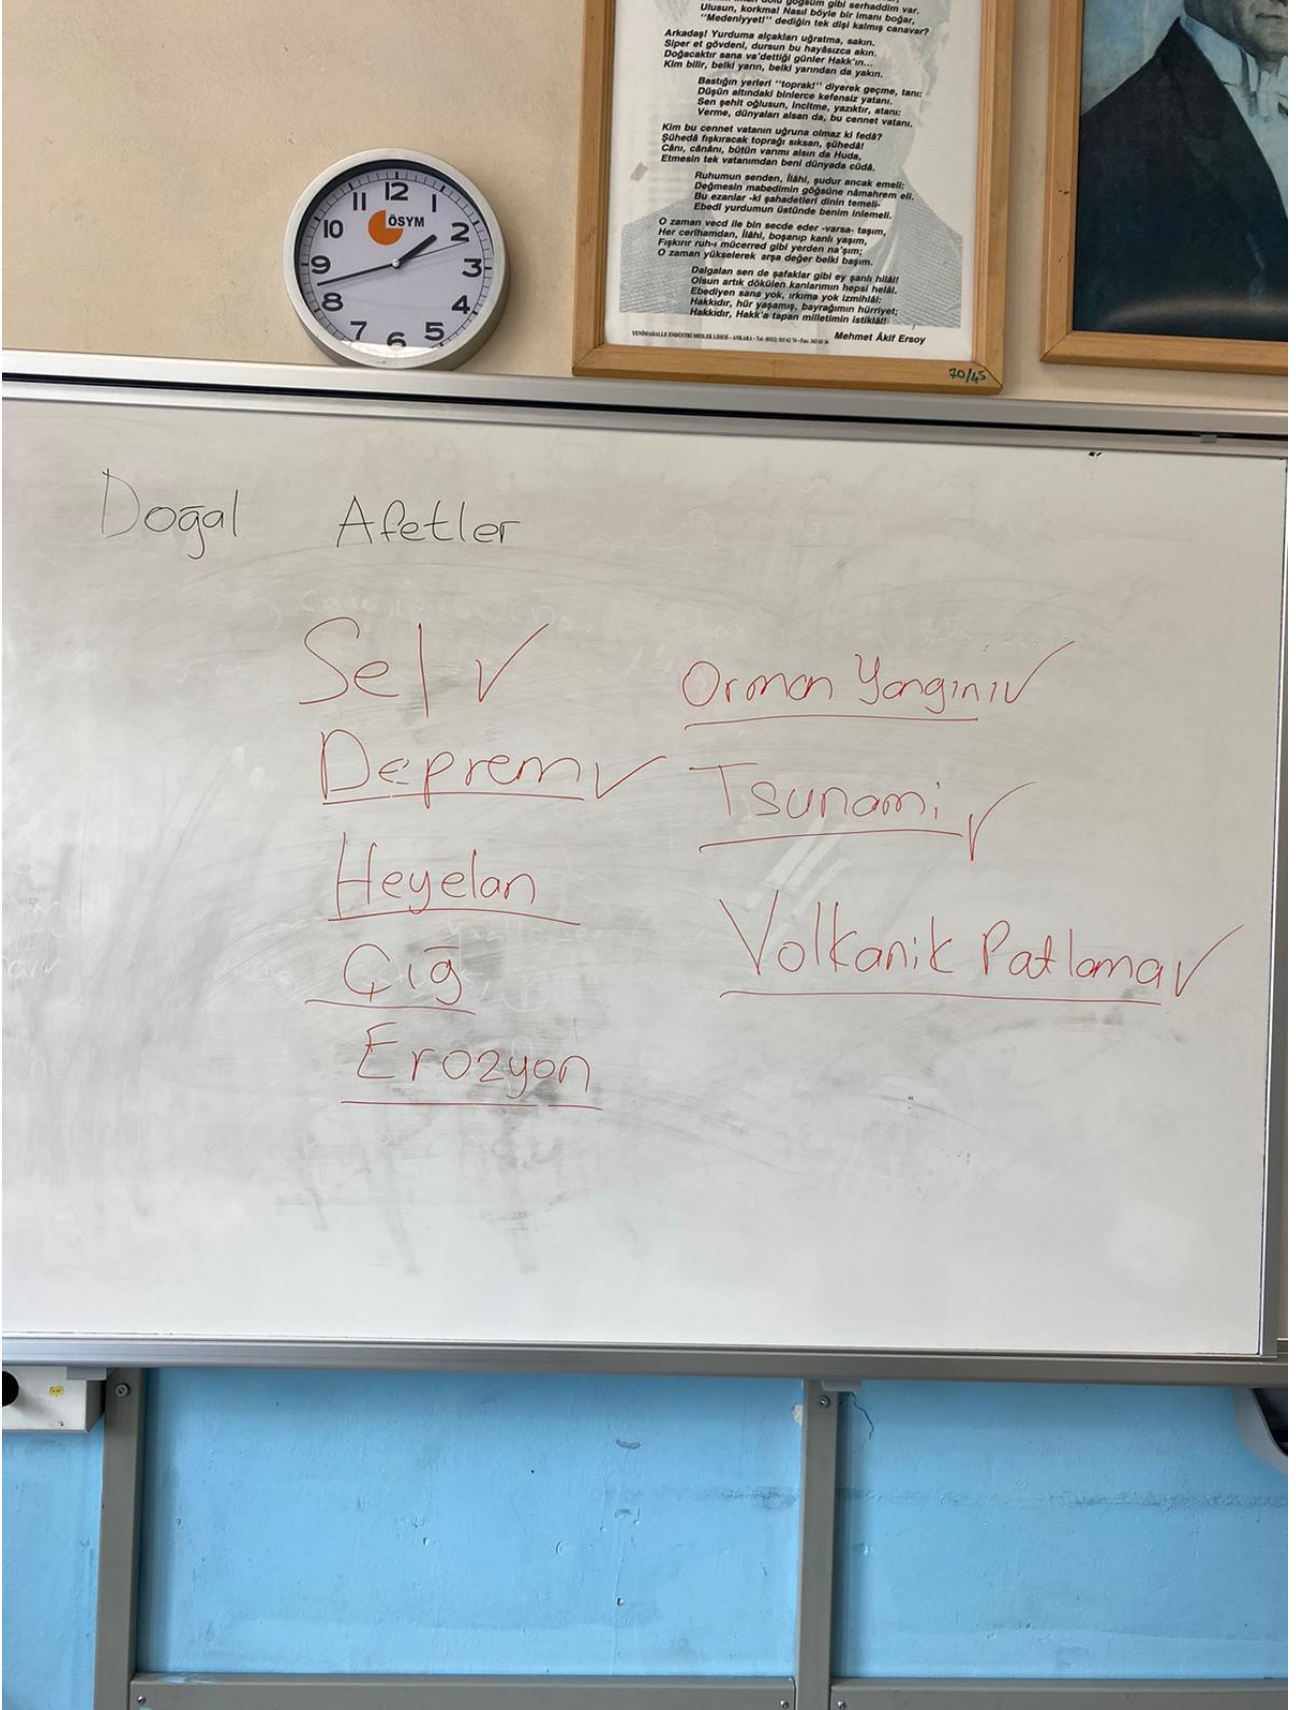 Ulusun, korkma! Nasıl böyle bir imanı boğar,
"Medeniyyet!" dediğin tek dişi kalmış canavar?
Arkadaş! Yurduma alçakları uğratma, sakın.
Siper et gövdeni, dursun bu hayâsızca akın.
Doğacaktır sana va'dettiği günler Hakk'ın...
Kim bilir, belki yarın, belki yarından da yakın.
Bastığın yerleri "toprak!" diyerek geçme, tanı:
Düşün altındaki binlerce kefensiz yatanı.
Sen şehit oğlusun, incitme, yazıktır, atanı:
Verme, dünyaları alsan da, bu cennet vatanı.
Kim bu cennet vatanın uğruna olmaz ki fedâ?
Şühedâ fışkıracak toprağı sıksan, şühedâ!
Cânı, cânânı, bütün varımı alsın da Huda,
Etmesin tek vatanımdan beni dünyada cüdâ.
Ruhumun senden, İlâhi, şudur ancak emeli:
Değmesin mabedimin göğsüne nâmahrem eli.
Bu ezanlar -ki şahadetleri dinin temeli-
Ebedî yurdumun üstünde benim inlemeli.
O zaman vecd ile bin secde eder -varsa- taşım,
Her cerihamdan, İlâhi, boşanıp kanlı yaşım,
Fışkırır ruh-ı mücerred gibi yerden na'şım;
O zaman yükselerek arşa değer belki başım.
Dalgalan sen de şafaklar gibi ey şanlı hilâl!
Olsun artık dökülen kanlarımın hepsi helâl.
Ebediyen sana yok, ırkıma yok izmihlâl:
Hakkıdır, hür yaşamış, bayrağımın hürriyet;
Hakkıdır, Hakk'a tapan milletimin istiklâl!
Mehmet Âkif Ersoy
YENİMAHALLE ENDÜSTRİ MESLEK LİSESİ - ANKARA
70/45
ÖSYM
12
11 1
10 2
9 3
8 4
7 6 5
Doğal Afetler
Sel ✓ Orman Yangını ✓
Deprem ✓ Tsunami ✓
Heyelan
Volkanik Patlama ✓
Çığ
Erozyon